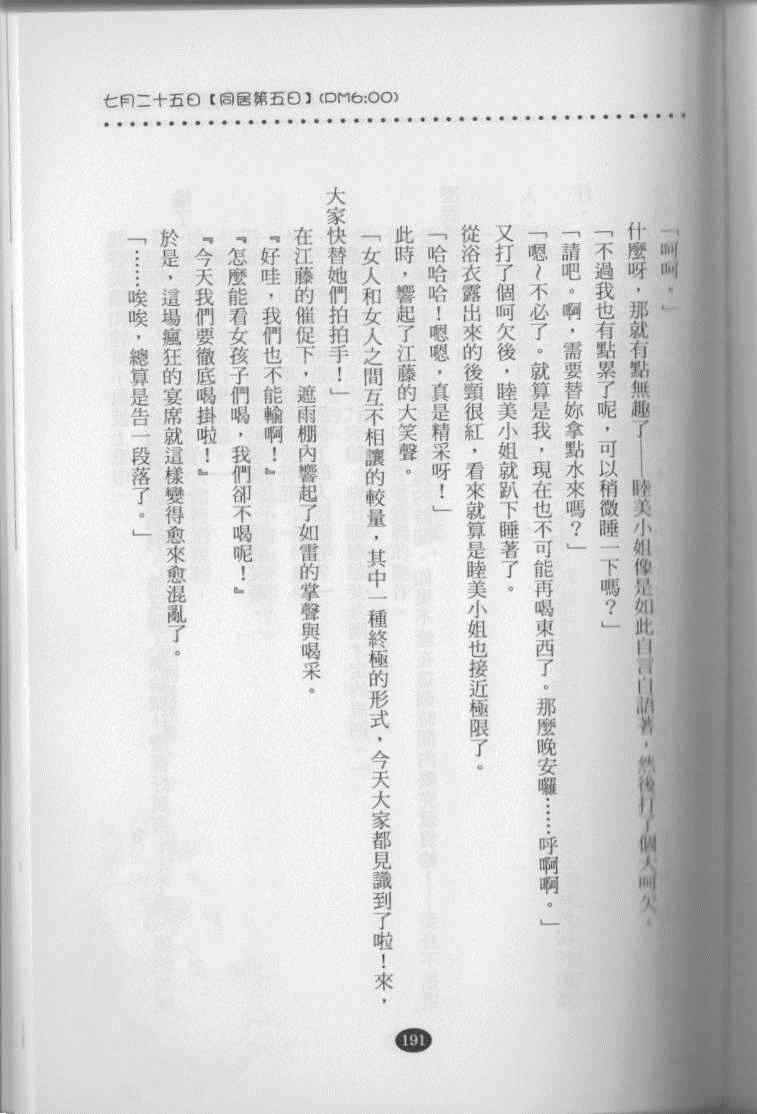 七月二十五日【同居第五日】(PM6:00)
「呵呵。」
什麼呀，那就有點無趣了——睦美小姐像是如此自言自語著，然後打了個大呵欠。
「不過我也有點累了呢，可以稍微睡一下嗎？」
「請吧。啊，需要替妳拿點水來嗎？」
「嗯～不必了。就算是我，現在也不可能再喝東西了。那麼晚安囉……呼啊啊。」
又打了個呵欠後，睦美小姐就趴下睡著了。
從浴衣露出來的後頸很紅，看來就算是睦美小姐也接近極限了。
「哈哈哈！嗯嗯，真是精采呀！」
此時，響起了江藤的大笑聲。
「女人和女人之間互不相讓的較量，其中一種終極的形式，今天大家都見識到了啦！來，
大家快替她們拍拍手！」
在江藤的催促下，遮雨棚內響起了如雷的掌聲與喝采。
『好哇，我們也不能輸啊！』
『怎麼能看女孩子們喝，我們卻不喝呢！』
『今天我們要徹底喝掛啦！』
於是，這場瘋狂的宴席就這樣變得愈來愈混亂了。
「……唉唉，總算是告一段落了。」
191